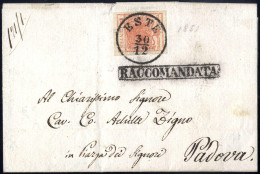 ESTE
30
12
RACCOMANDATA
Al Chiarissimo Signore
Cav. C. Achille Zigno
in Piazza dei Signori
Padova.